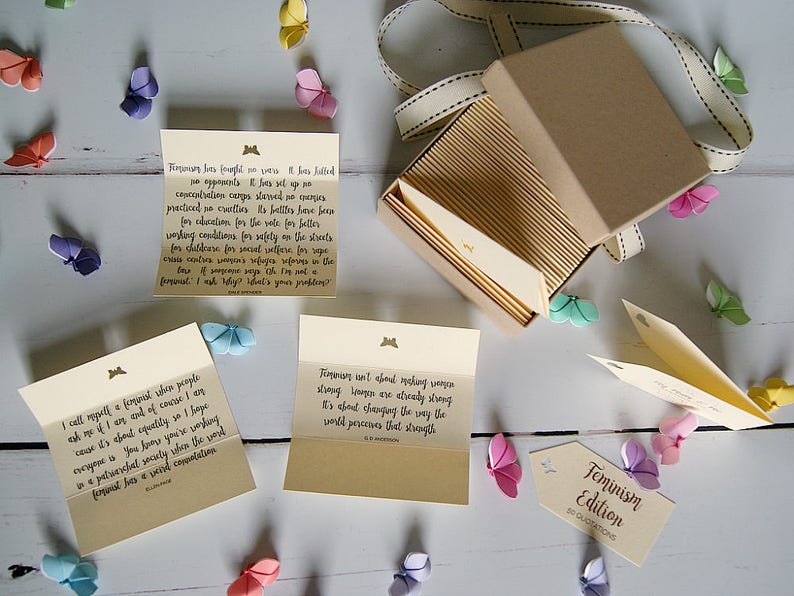 Feminism has fought no wars. It has killed
no opponents. It has set up no
concentration camps, starved no enemies,
practiced no cruelties. Its battles have been
for education, for the vote, for better
working conditions, for safety on the streets,
for childcare, for social welfare, for rape
crisis centres, women's refuges, reforms in the
law. If someone says 'Oh, I'm not a
feminist,' I ask 'Why? What's your problem?'
DALE SPENDER
I call myself a feminist when people
ask me if I am, and of course I am
'cause it's about equality, so I hope
everyone is. You know you're working
in a patriarchal society when the word
feminist has a weird connotation.
ELLEN PAGE
Feminism isn't about making women
strong. Women are already strong.
It's about changing the way the
world perceives that strength.
G.D. ANDERSON
Feminism
Edition
50 QUOTATIONS